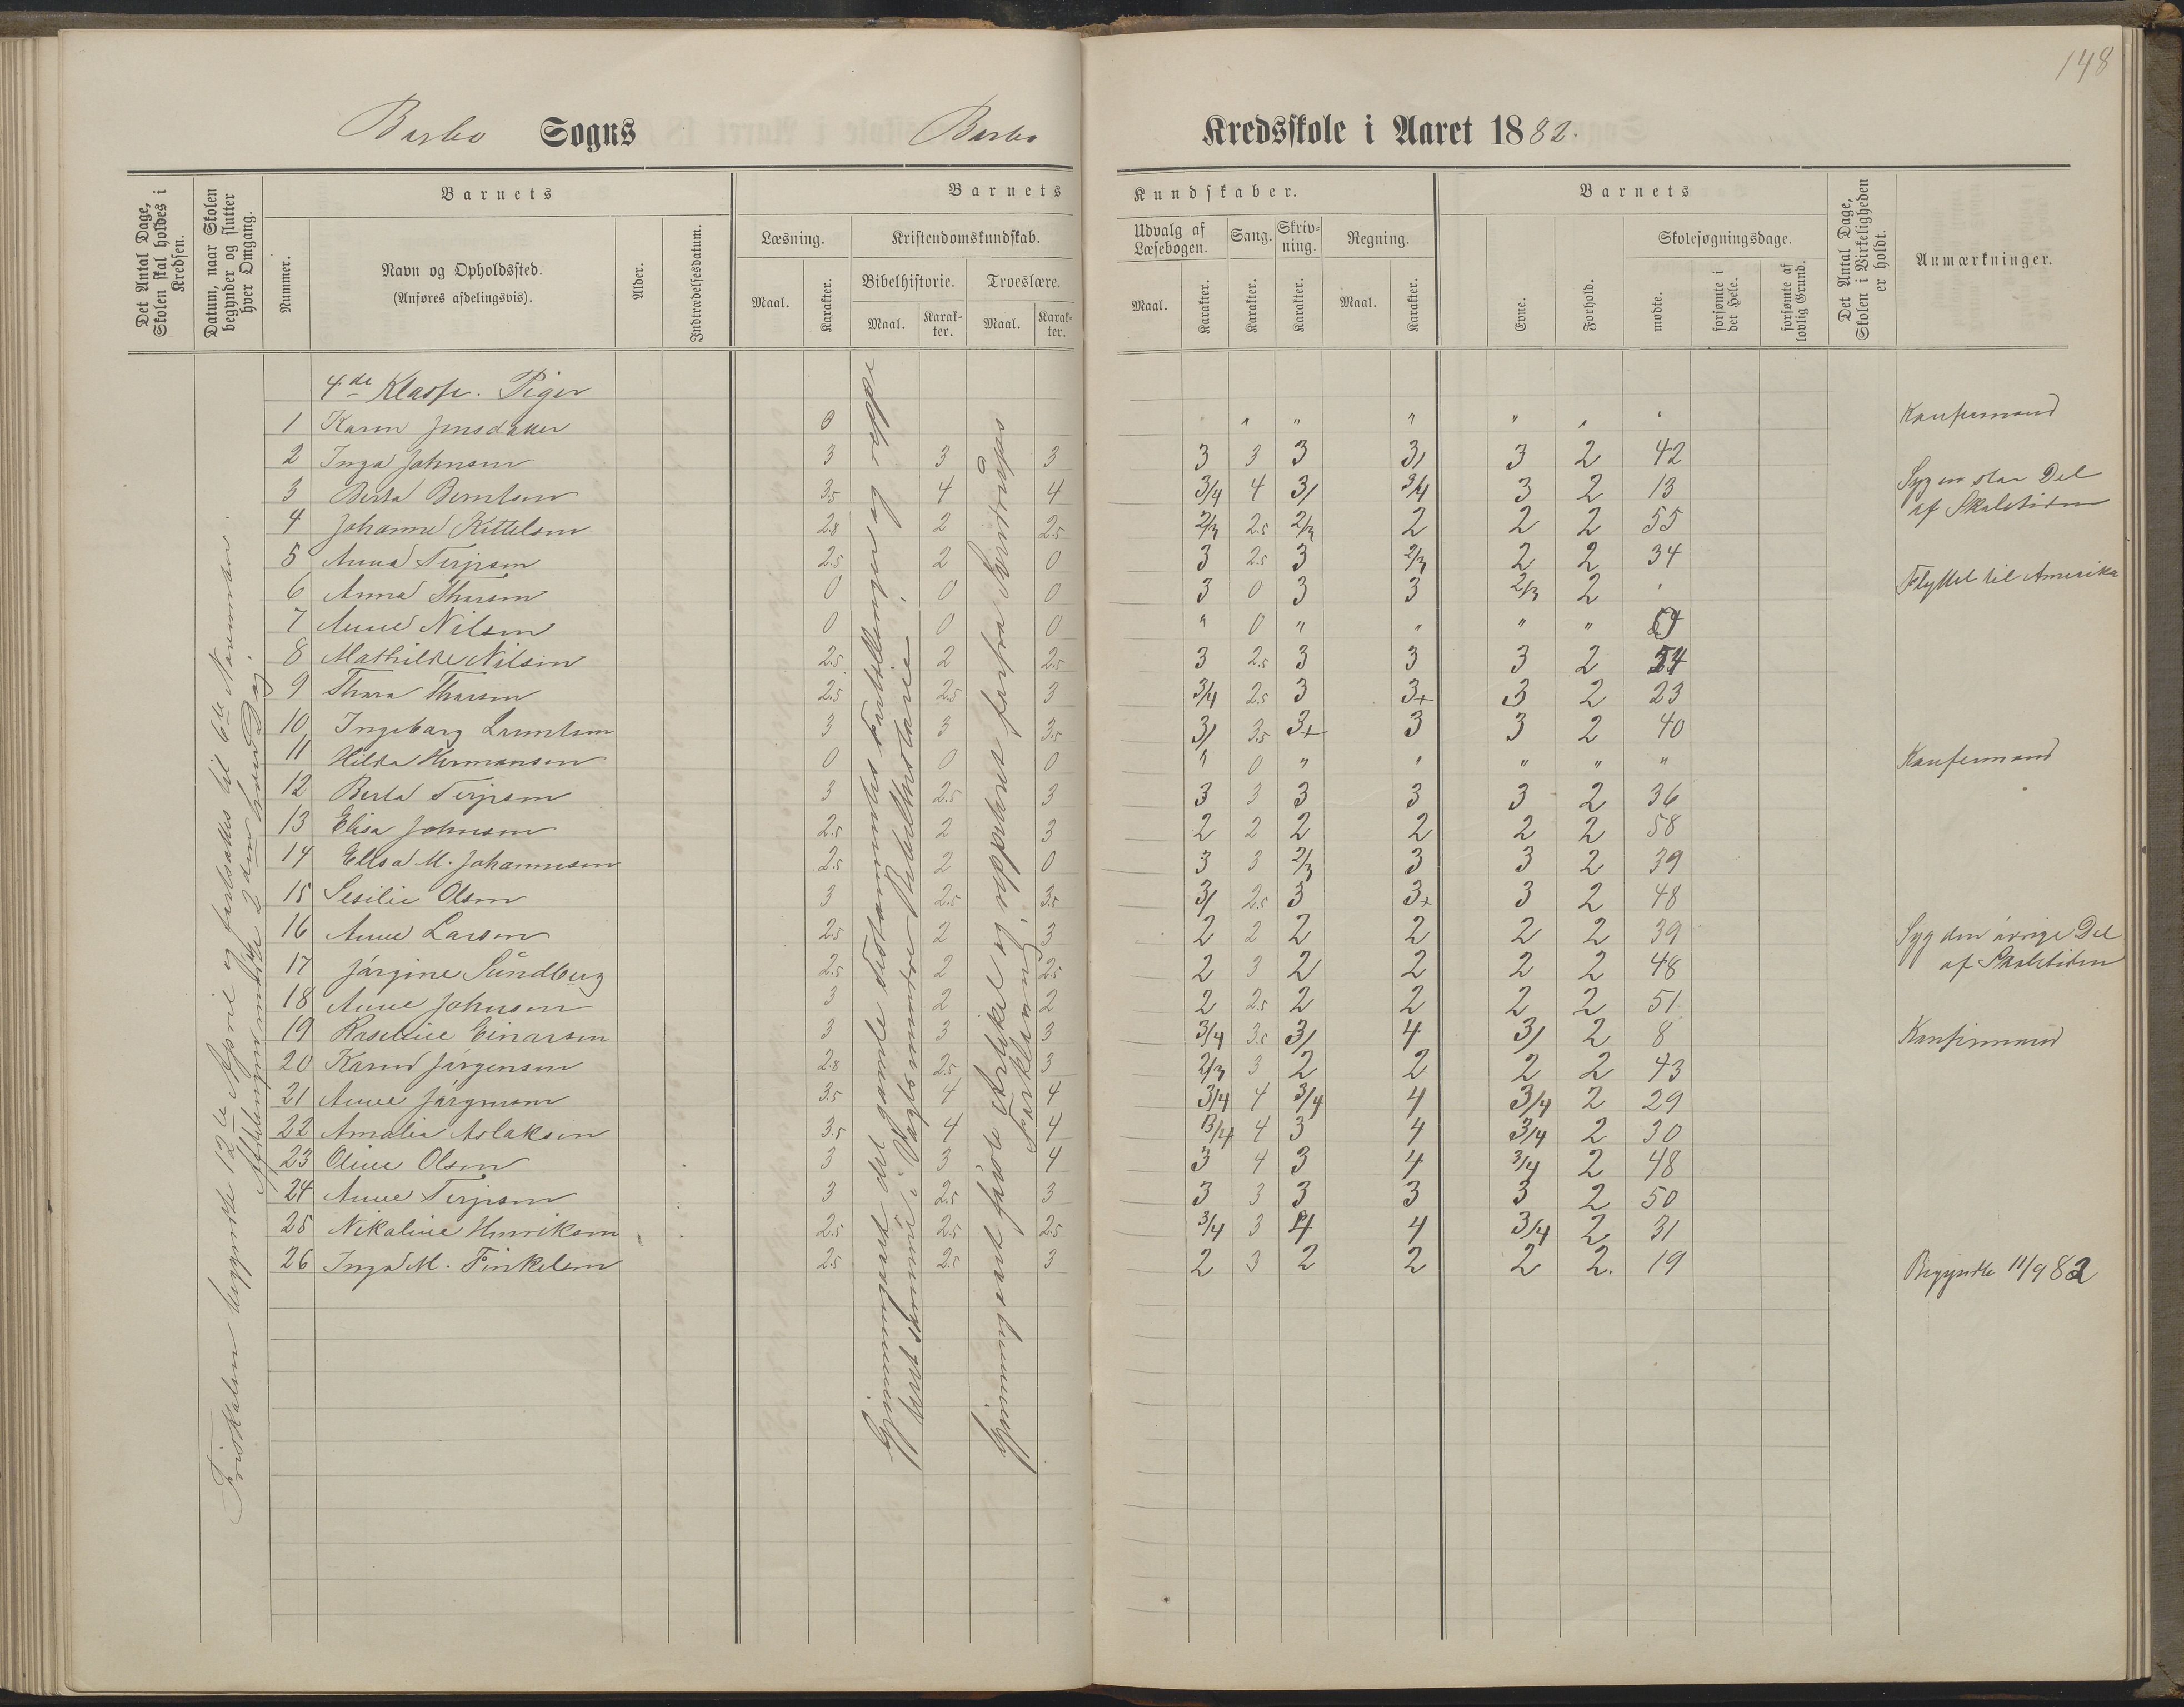 148
Barbo Sogns Barbo Kredsskole i Aaret 1882.
Det Antal Dage, Skolen skal holdes i Kredsen.
Datum, naar Skolen begynder og slutter hver Omgang.
Barnets
Nummer.
Navn og Opholdssted.
(Anføres afdelingsvis).
Alder.
Indtrædelsesdatum.
Barnets Kundskaber.
Læsning.
Maal. Karakter.
Kristendomskundskab.
Bibelhistorie. Troeslære.
Maal. Karakter. Maal. Karakter.
Udvalg af Læsebogen.
Maal. Karakter.
Sang.
Karakter.
Skrivning.
Karakter.
Regning.
Maal. Karakter.
Barnets
Evne.
Forhold.
Skolesøgningsdage.
mødte.
forsømte i det Hele.
forsømte af lovlig Grund.
Det Antal Dage, Skolen i Virkeligheden er holdt.
Anmærkninger.
Friskolen begyndte 12te April og fortsattes til 6te November.
Afdelingen mødte 2den hver Dag.
Gjennemgaaet det gamle Testamentes Fortællinger og opgg
Gjennemgaaet fjerde Artikel og repeteret forfra
Forklaring
4de Klasse. Piger
1 Karen Jensdatter 0 " " " " " " Konfirmand
2 Inga Johnsen 3 3 3 3 3 3 3/ 3 2 42
3 Berta Berntsen 3.5 4 4 3/4 4 3/ 3/4 3 2 13 Syg en stor Del
af Skoletiden
4 Johanne Kittelsen 2.8 2 2.5 2/3 2.5 2/3 2 2 2 55
5 Anna Terjesen 2.5 2 0 3 2.5 3 2/3 2 2 34
6 Anna Thorsen 0 0 0 3 0 3 3 2/3 2 Flyttet til Amerika
7 Anne Nilsen 0 0 0 " 0 " " " "
8 Mathilde Nilsen 2.5 2 2.5 3 2.5 3 3 3 2 54
9 Thora Thorsen 2.5 2.5 3 3/4 2.5 3 3+ 3 2 23
10 Ingeborg Lorentsen 3 3 3.5 3/ 3.5 3+ 3 3 2 40
11 Hilda Hermansen 0 0 0 " 0 " " " " " Konfirmand
12 Berta Terjesen 3 2.5 3 3 3 3 3 3 2 36
13 Elisa Johnsen 2.5 2 3 2 2 2 2 2 2 58
14 Elisa M. Johannesen 2.5 2 0 3 3 2/3 3 3 2 39
15 Sesilie Olsen 3 2.5 3.5 3/ 2.5 3 3+ 3 2 48
16 Anne Larsen 2.5 2 3 2 2 2 2 2 2 39 Syg den øvrige Del
af Skoletiden
17 Jørgine Sundberg 2.5 2 2.5 2 3 2 2 2 2 48
18 Anne Johnsen 3 2 2 2 2.5 2 2 2 2 51
19 Roseline Einarsen 3 3 3 3/4 3.5 3/ 4 3/ 2 8 Konfirmand
20 Karen Jørgensen 2.8 2.5 3 2/3 3 2 2 2 2 43
21 Anne Jørgensen 3.5 4 4 3/4 4 3/4 4 3/4 2 29
22 Amalia Aslaksen 3.5 4 4 3/4 4 3 4 3/4 2 30
23 Oline Olsen 3 3 4 3 4 3 4 3/4 2 48
24 Anne Terjesen 3 2.5 3 3 3 3 3 3 2 50
25 Nikoline Henriksen 2.5 2.5 2.5 3/4 3 4 4 3/4 2 31
26 Inga M. Finkelsen 2.5 2.5 3 2 3 2 2 2 2. 19 Begyndte 11/9 82